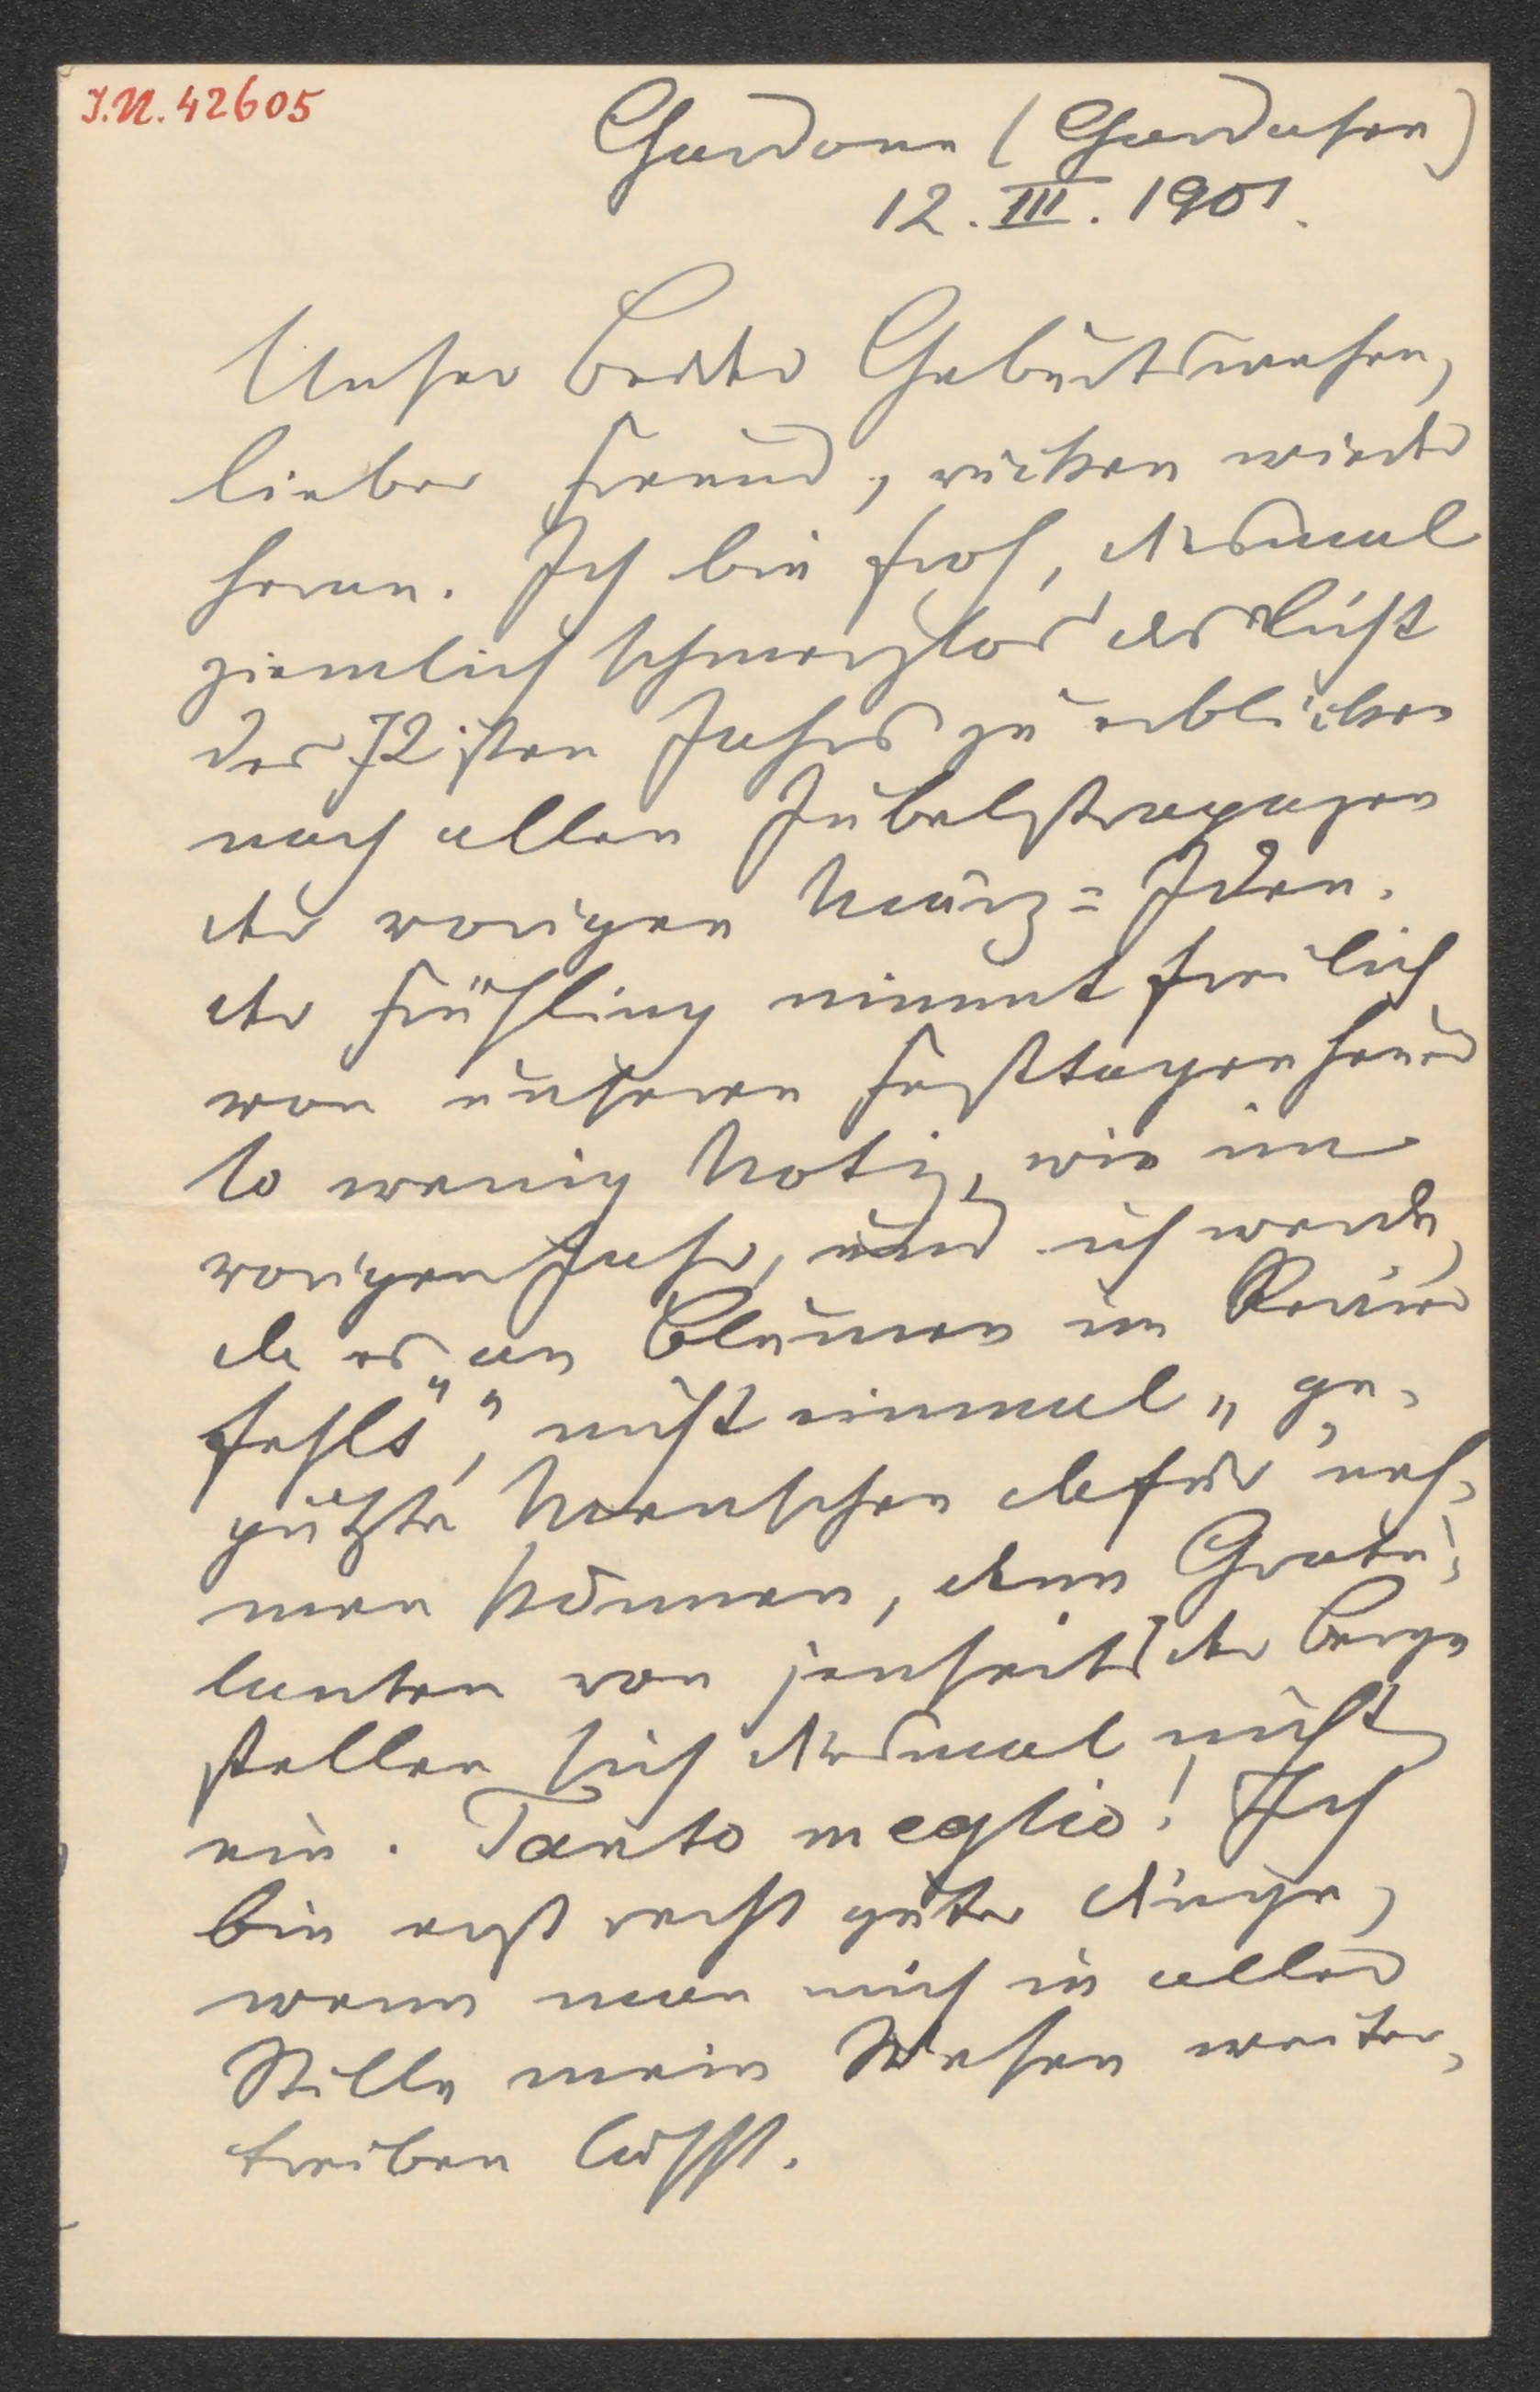 I.N. 42605
Gardone (Gardasee)
12. III. 1901.
Unser beider Geburtswehen,
lieber Freund, rücken wieder
heran. Ich bin froh, diesmal
ziemlich schmerzlos das Licht
des 72sten Jahres zu erblicken
nach allen Jubelstrapazen
der vorigen März-Iden.
Der Frühling nimmt freilich
von unseren Festtagen heuer
so wenig Notiz, wie im
vorigen Jahr, und ich werde,
da es „an Blumen im Revier
fehlt", nicht einmal „ge-
putzte Menschen dafür" neh-
men können, denn Gratu-
lanten von jenseits der Berge
stellen sich diesmal nicht
ein. Tanto meglio! Ich
bin erst recht guter Dinge,
wenn man mich in aller
Stille mein Wesen weiter-
treiben läßt.